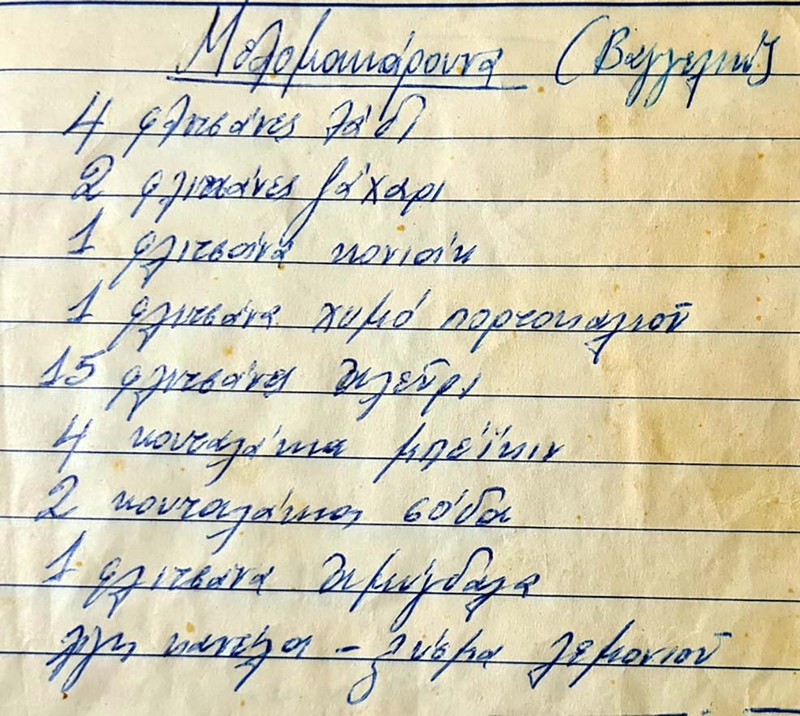 Μελομακάρουνα (Βαγγελιώ)
4 φλιτσάνες λάδι
2 φλιτσάνες ζάχαρι
1 φλιτσάνα κονιάκ
1 φλιτσάνα χυμό πορτοκαλιοῦ
15 φλιτσάνες ἀλεῦρι
4 κουταλάκια μπέϊκιν
2 κουταλάκια σόδα
1 φλιτσάνα ἀμύγδαλα
λίγη κανέλα – ξύσμα λεμονιοῦ